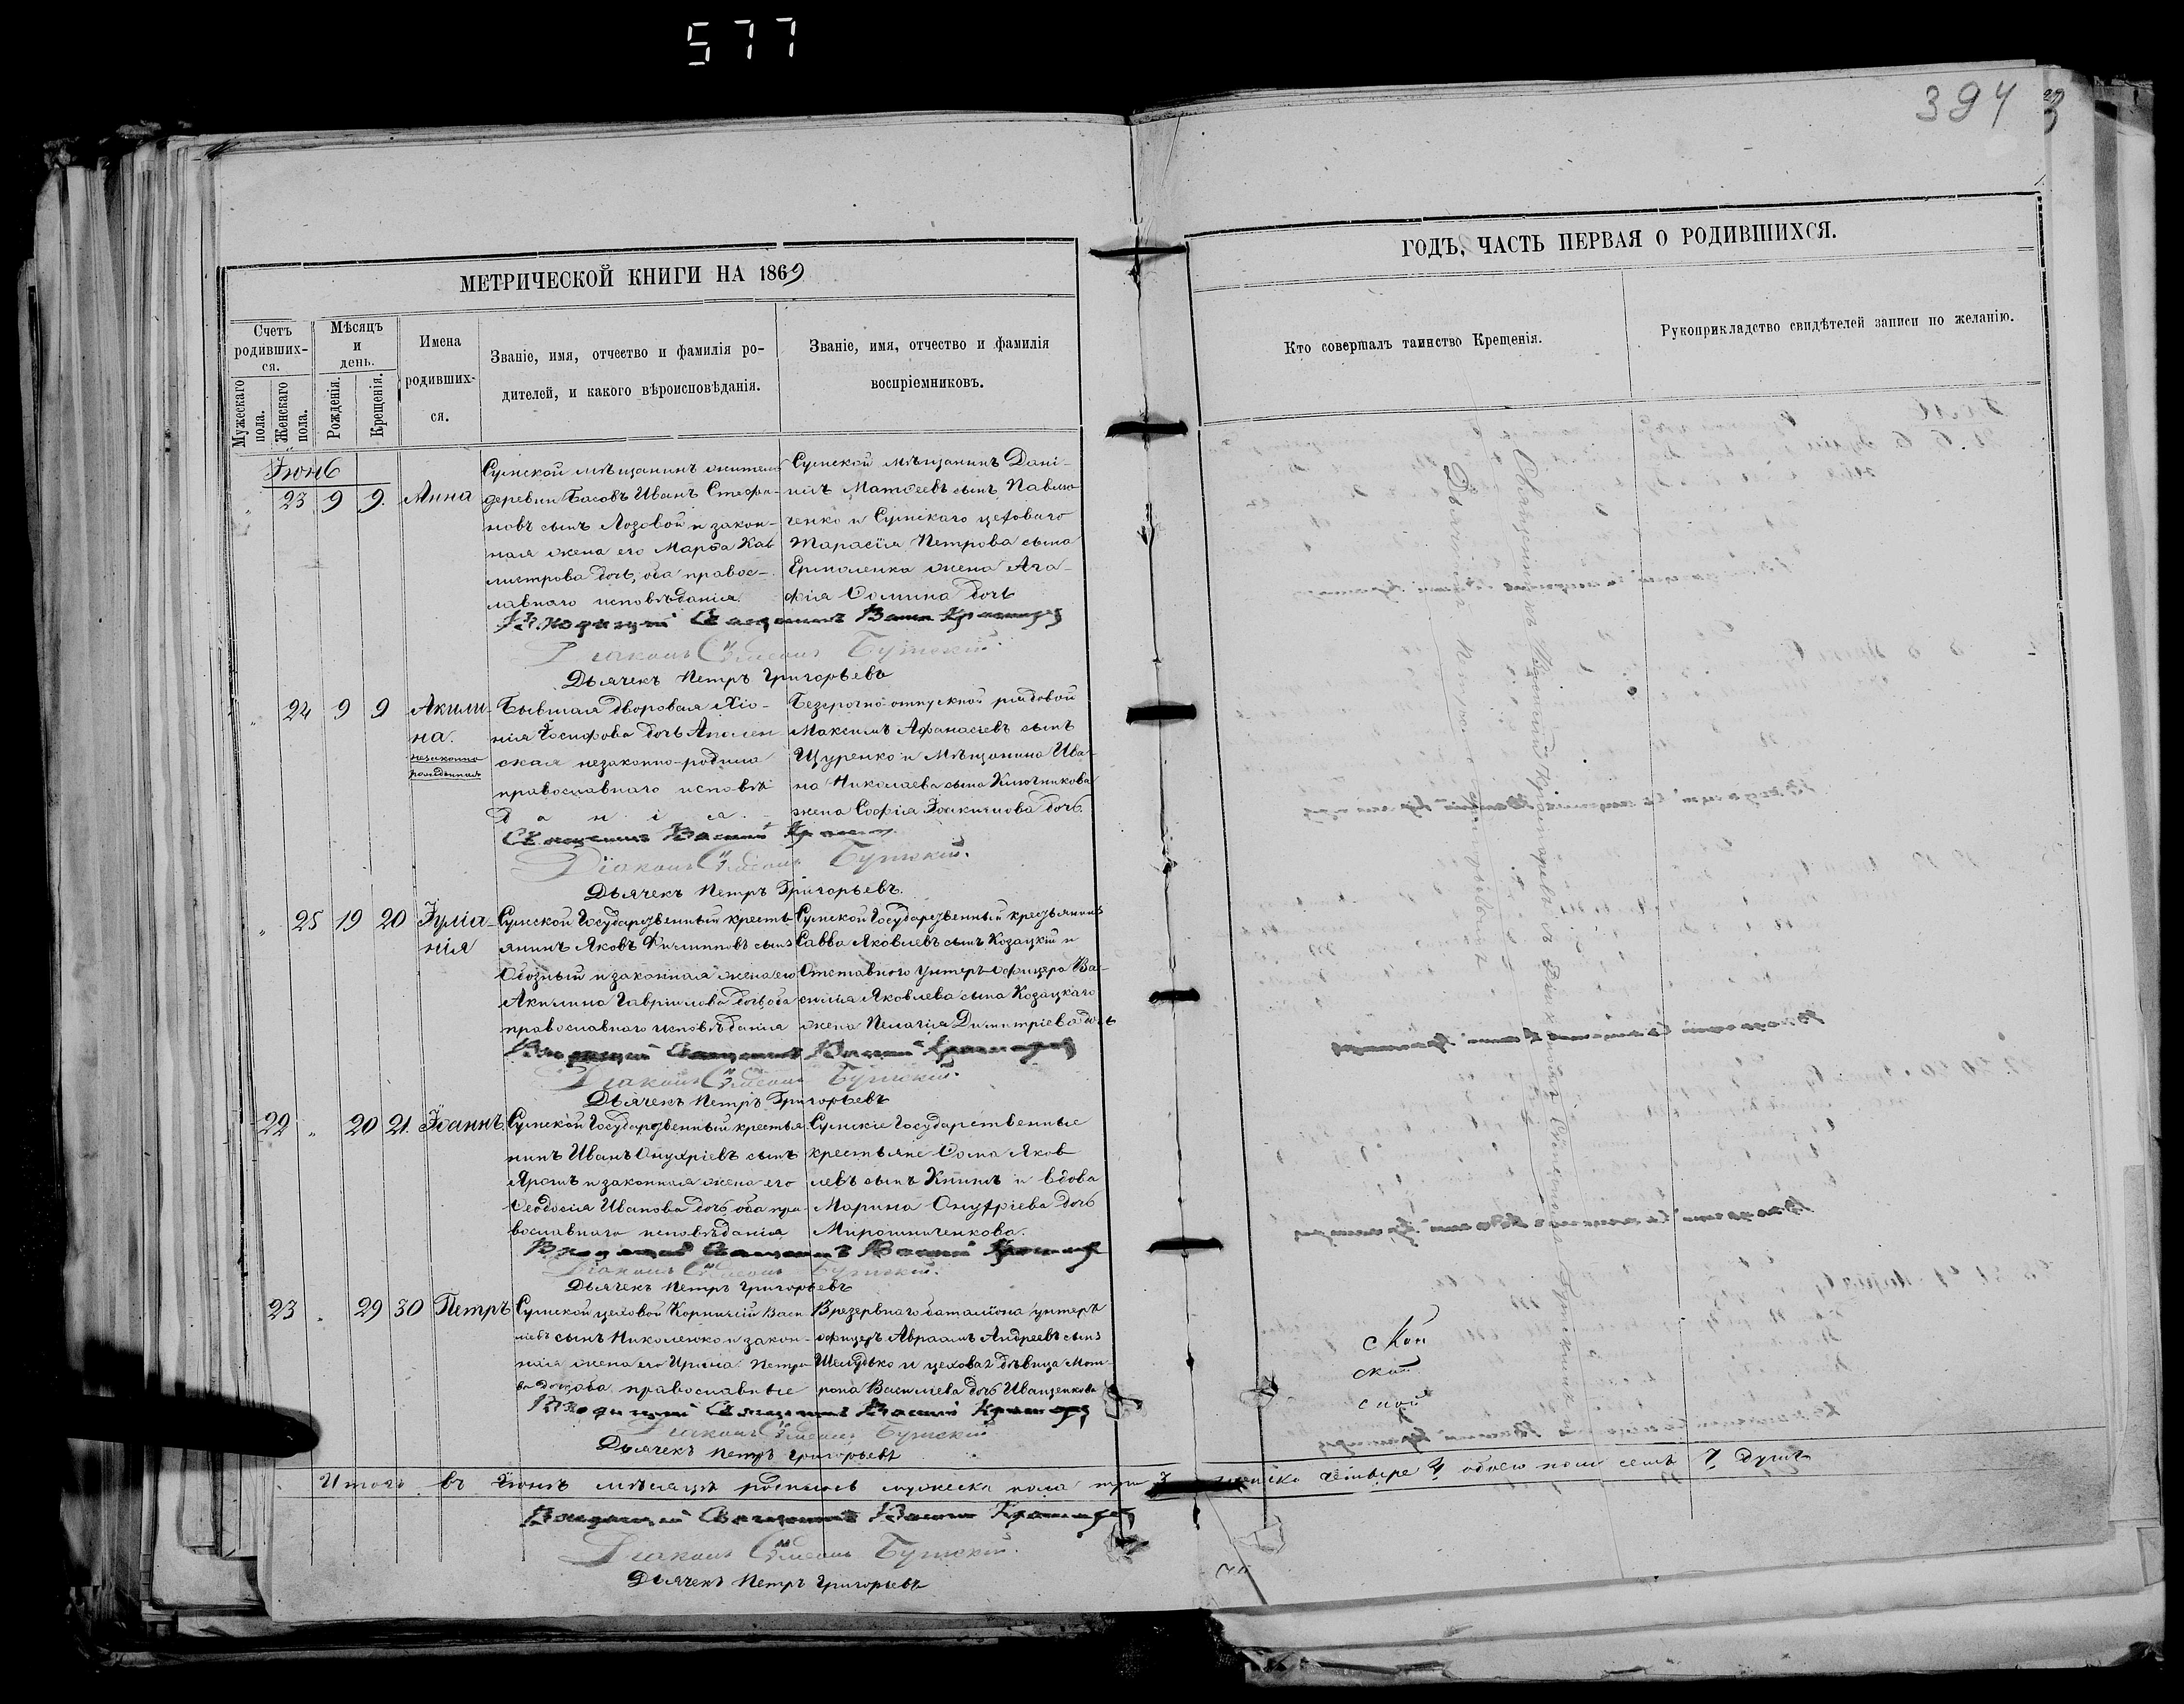 577
394
МЕТРИЧЕСКОЙ КНИГИ НА 1869
ГОДЪ, ЧАСТЬ ПЕРВАЯ О РОДИВШИХСЯ.
Счетъ родивших-ся.
Мужескаго пола.
Женскаго пола.
Мѣсяцъ и день.
Рожденія.
Крещенія.
Имена родивших-ся.
Званіе, имя, отчество и фамилія ро-
дителей, и какого вѣроисповѣданія.
Званіе, имя, отчество и фамилія
воспріемниковъ.
Кто совершалъ таинство Крещенія.
Рукоприкладство свидѣтелей записи по желанію.
Іюнь
23 9 9. Анна
Сумской мѣщанинъ житель
деревни Басовъ Иванъ Стефа-
новъ сынъ Лозовой и закон-
ная жена его Марѳа Кал
листрова дочь, оба правос-
лавнаго исповѣданія.
Сумской мѣщанинъ Дані-
илъ Матѳеевъ сынъ Павлю
ченко и Сумскаго цеховаго
Тарасія Петрова сына
Ермоленка жена Ага-
фія Ѳомина дочь
Священникъ
Діаконъ Симеонъ
Дьячекъ Петръ Григорьевъ
24 9 9 Акили-
на.
незаконно
рожденная
Бывшая дворовая
Іосифова дочь
незаконно-родила
православнаго исповѣ
данія.
Безсрочно-отпускной рядовой
Максимъ Афанасіевъ сынъ
Щуренко и Мѣщанина Ива-
на Николаева сына Ключникова
жена Софія Іоакимова дочь.
Священникъ Василій
Діаконъ Симеонъ
Дьячекъ Петръ Григорьевъ.
25 19 20 Іуліа-
нія
Сумской Государственный кресть-
янинъ Яковъ Филипповъ сынъ
Обозный и законная жена его
Акилина Гавріилова дочь оба
православнаго исповѣданія
Сумской Государственный крестьянинъ
Савва Яковлевъ сынъ Козацкій и
Отставного Унтеръ-офицера Ва-
силія Яковлева сына Козацкаго
жена Пелагія Димитріева дочь
Священникъ Василій
Діаконъ Симеонъ
Дьячекъ Петръ Григорьевъ
22 20 21. Іоаннъ.
Сумской Государственный крестья
нинъ Иванъ Онуфріевъ сынъ
Ярошъ и законная жена его
Ѳеодосія Иванова дочь оба пра-
вославнаго исповѣданія
Сумскіе Государственные
крестьяне Ѳома Яков
левъ сынъ и вдова
Марина Онуфріева дочь
Мирошниченкова.
Священникъ Василій
Діаконъ Симеонъ
Дьячекъ Петръ Григорьевъ
23 29 30 Петръ
Сумской цеховой Корнилій Васи
ліевъ сынъ Николенко и закон-
ная жена его Ирина Петро
ва дочь, оба православные
Врезервнаго баталіона унтеръ
офицеръ Авраамъ Андреевъ сынъ
Шелудько и цеховая дѣвица Мат-
рона Василіева дочь Иващенкова
Священникъ Василій
Діаконъ Симеонъ
Дьячекъ Петръ Григорьевъ
Итого въ Іюнѣ мѣсяцѣ родилось мужеска пола три 3 женска четыре 4 обоего пола семь 7 душъ
Священникъ
Діаконъ Симеонъ
Дьячекъ Петръ Григорьевъ
ской